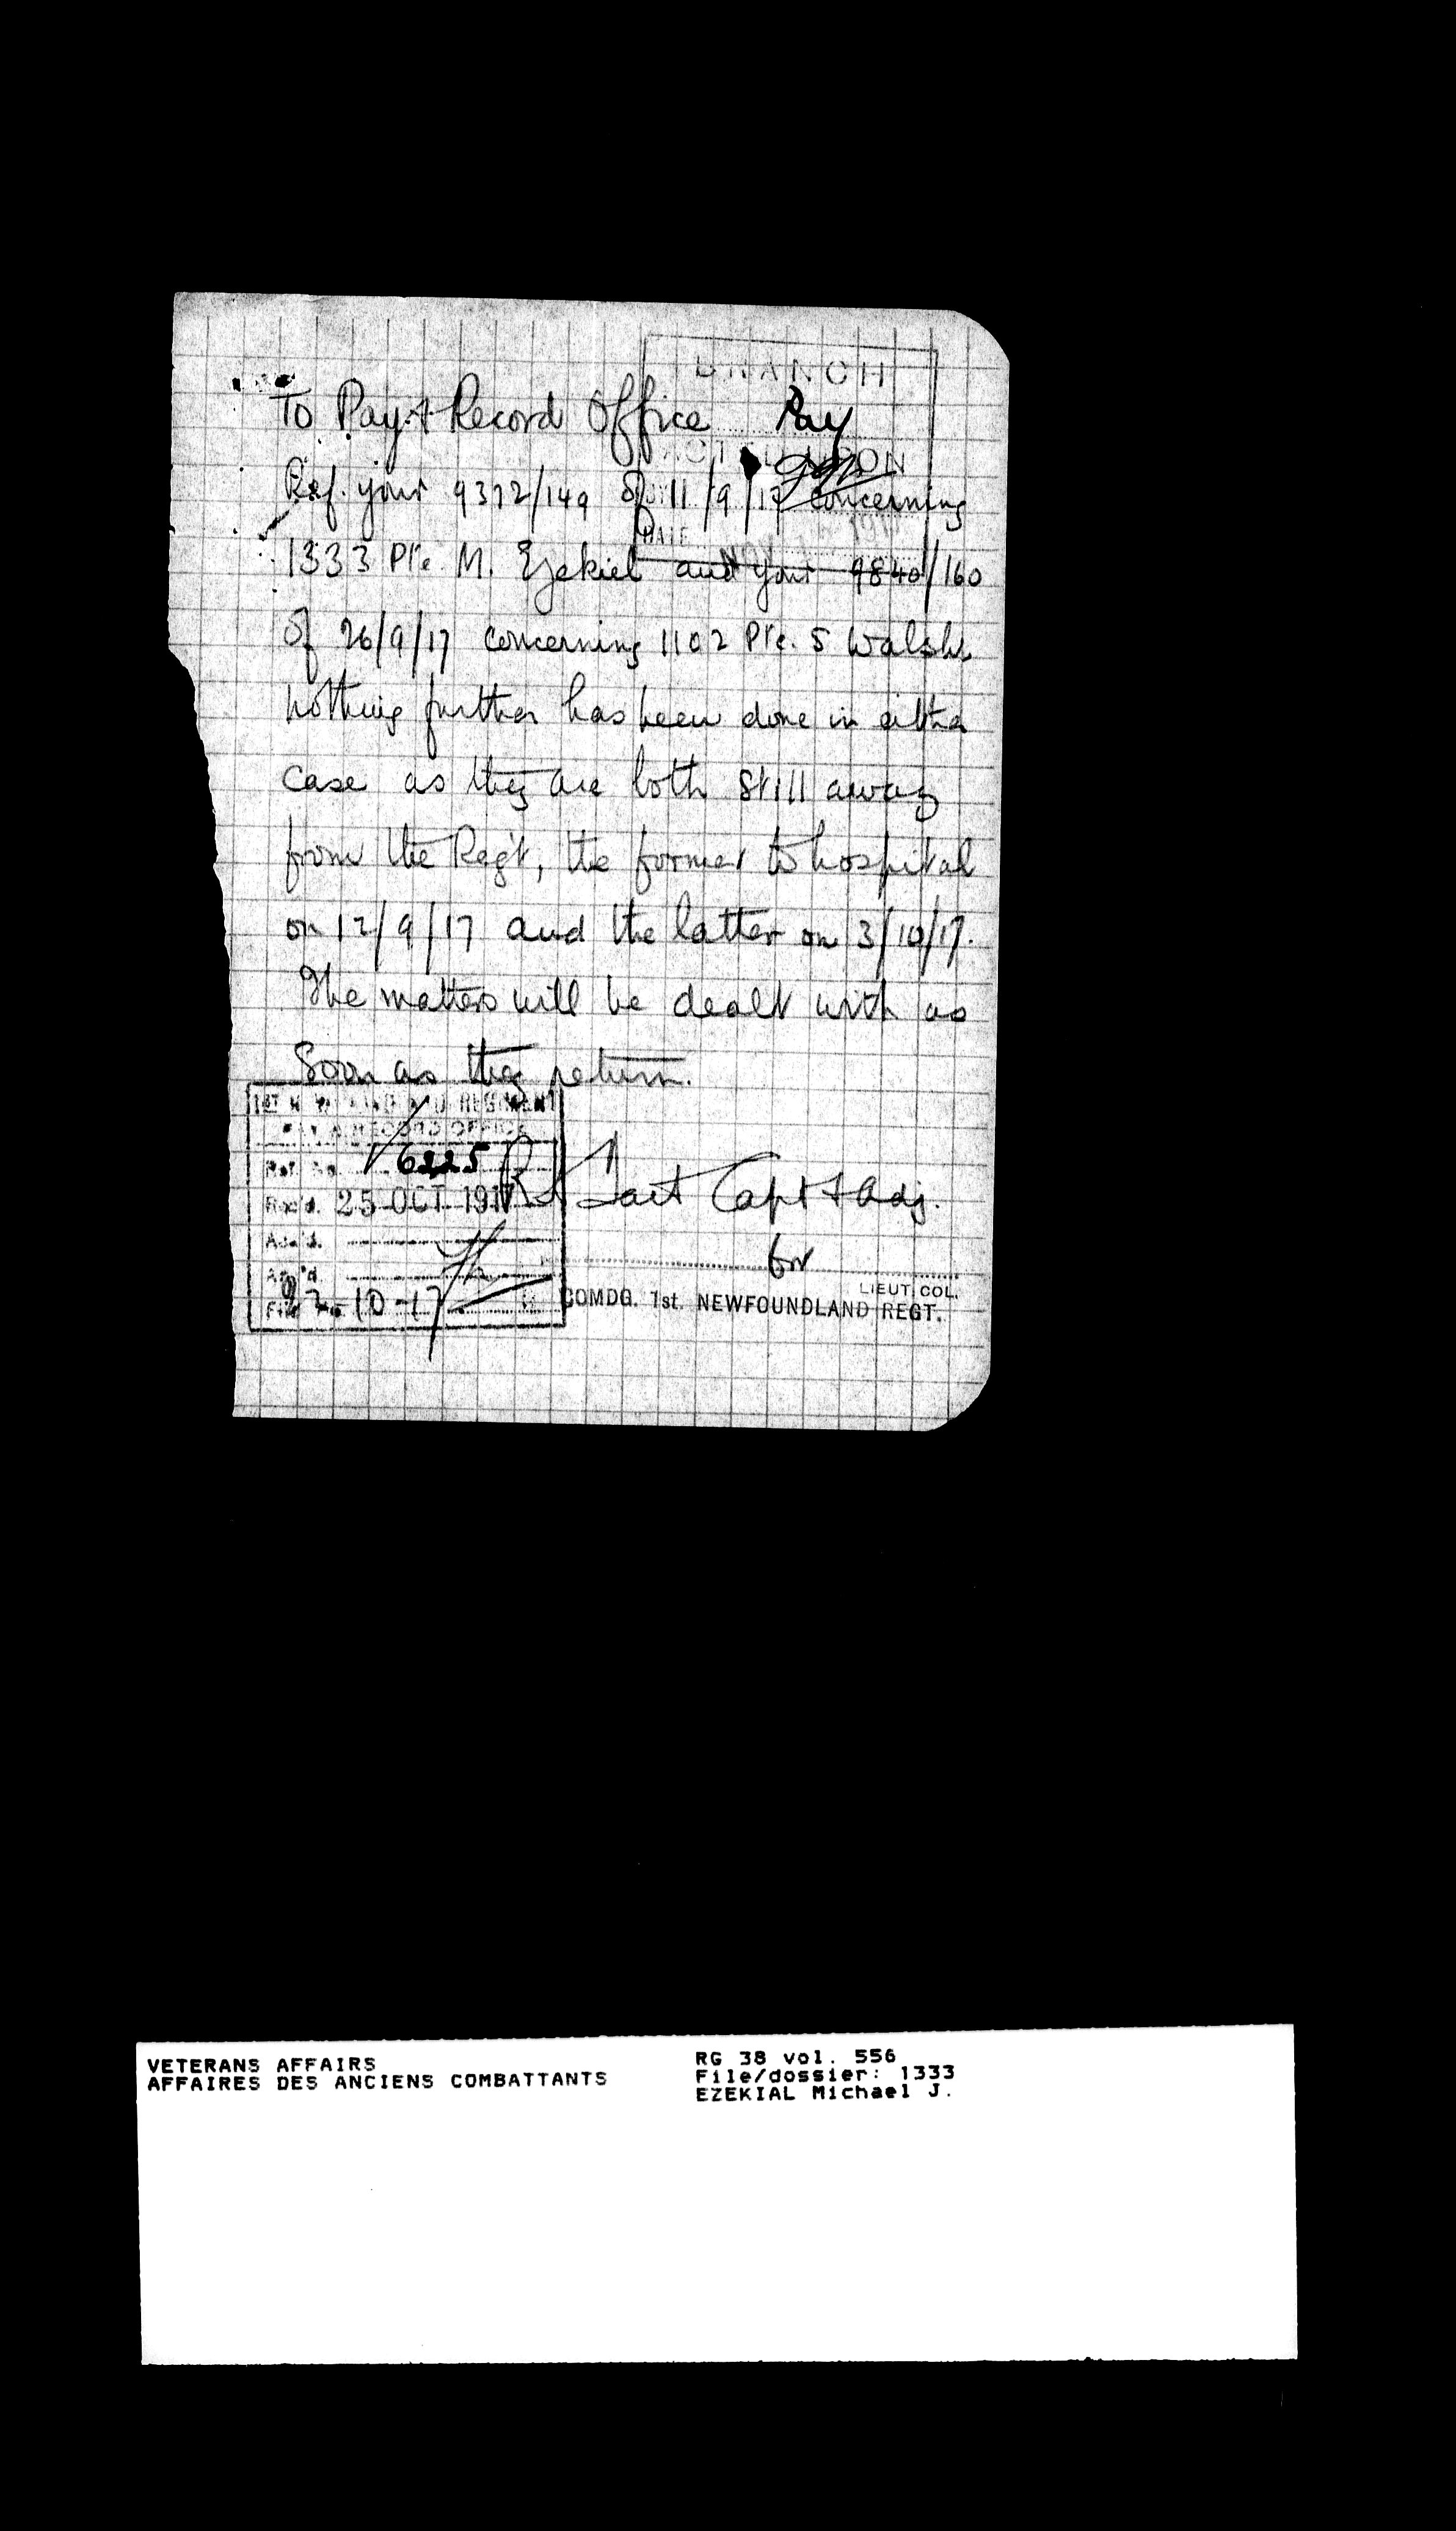 BRANCH
To Pay & Record Office Pay
Ref. your 9372/149 of 11/9/17 concerning
DATE
1333 Pte. M. Ezekiel and your 9840/160
of 26/9/17 concerning 1102 Pte. S Walsh
nothing further has been done in either
case as they are both still away
from the Reg't, the former to hospital
on 12/9/17 and the latter on 3/10/17.
The matters will be dealt with as
soon as they return.
1ST NEWFOUNDLAND REGIMENT
PAY & RECORD OFFICE
Ref. No. 6225
Rec'd. 25 OCT 1917
Tait Capt & Adj.
Ack'd.
for
LIEUT. COL.
COMDG. 1st. NEWFOUNDLAND REGT.
VETERANS AFFAIRS
AFFAIRES DES ANCIENS COMBATTANTS
RG 38 vol. 556
File/dossier: 1333
EZEKIAL Michael J.